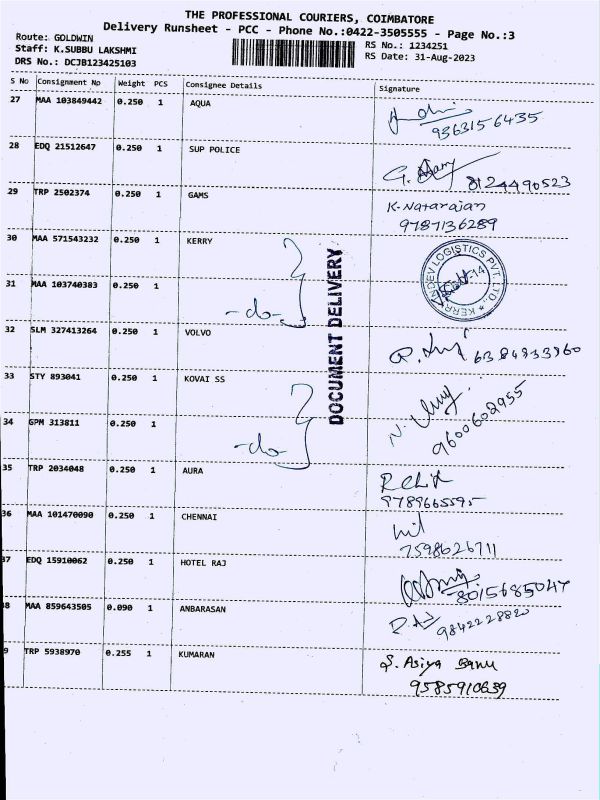 THE PROFESSIONAL COURIERS, COIMBATORE
Delivery Runsheet - PCC - Phone No.:0422-3505555 - Page No.:3
Route: GOLDWIN
Staff: K.SUBBU LAKSHMI
DRS No.: DCJB123425103
RS No.: 1234251
RS Date: 31-Aug-2023
S No Consignment No Weight PCS Consignee Details Signature
27 MAA 103849442 0.250 1 AQUA
9363156435
28 EDQ 21512647 0.250 1 SUP POLICE
8124490523
29 TRP 2502374 0.250 1 GAMS K.Natarajan
9787136289
30 MAA 571543232 0.250 1 KERRY
31 MAA 103740383 0.250 1 -do-
DOCUMENT DELIVERY
LOGISTICS PVT. LTD.
32 SLM 327413264 0.250 1 VOLVO
33 STY 893041 0.250 1 KOVAI SS
9600602955
34 GPM 313811 0.250 1 -do-
35 TRP 2034048 0.250 1 AURA
36 MAA 101470090 0.250 1 CHENNAI
7598626711
37 EDQ 15910062 0.250 1 HOTEL RAJ
8015685047
8 MAA 859643505 0.090 1 ANBARASAN
9842228820
9 TRP 5938970 0.255 1 KUMARAN S. Asiya Banu
9585910639